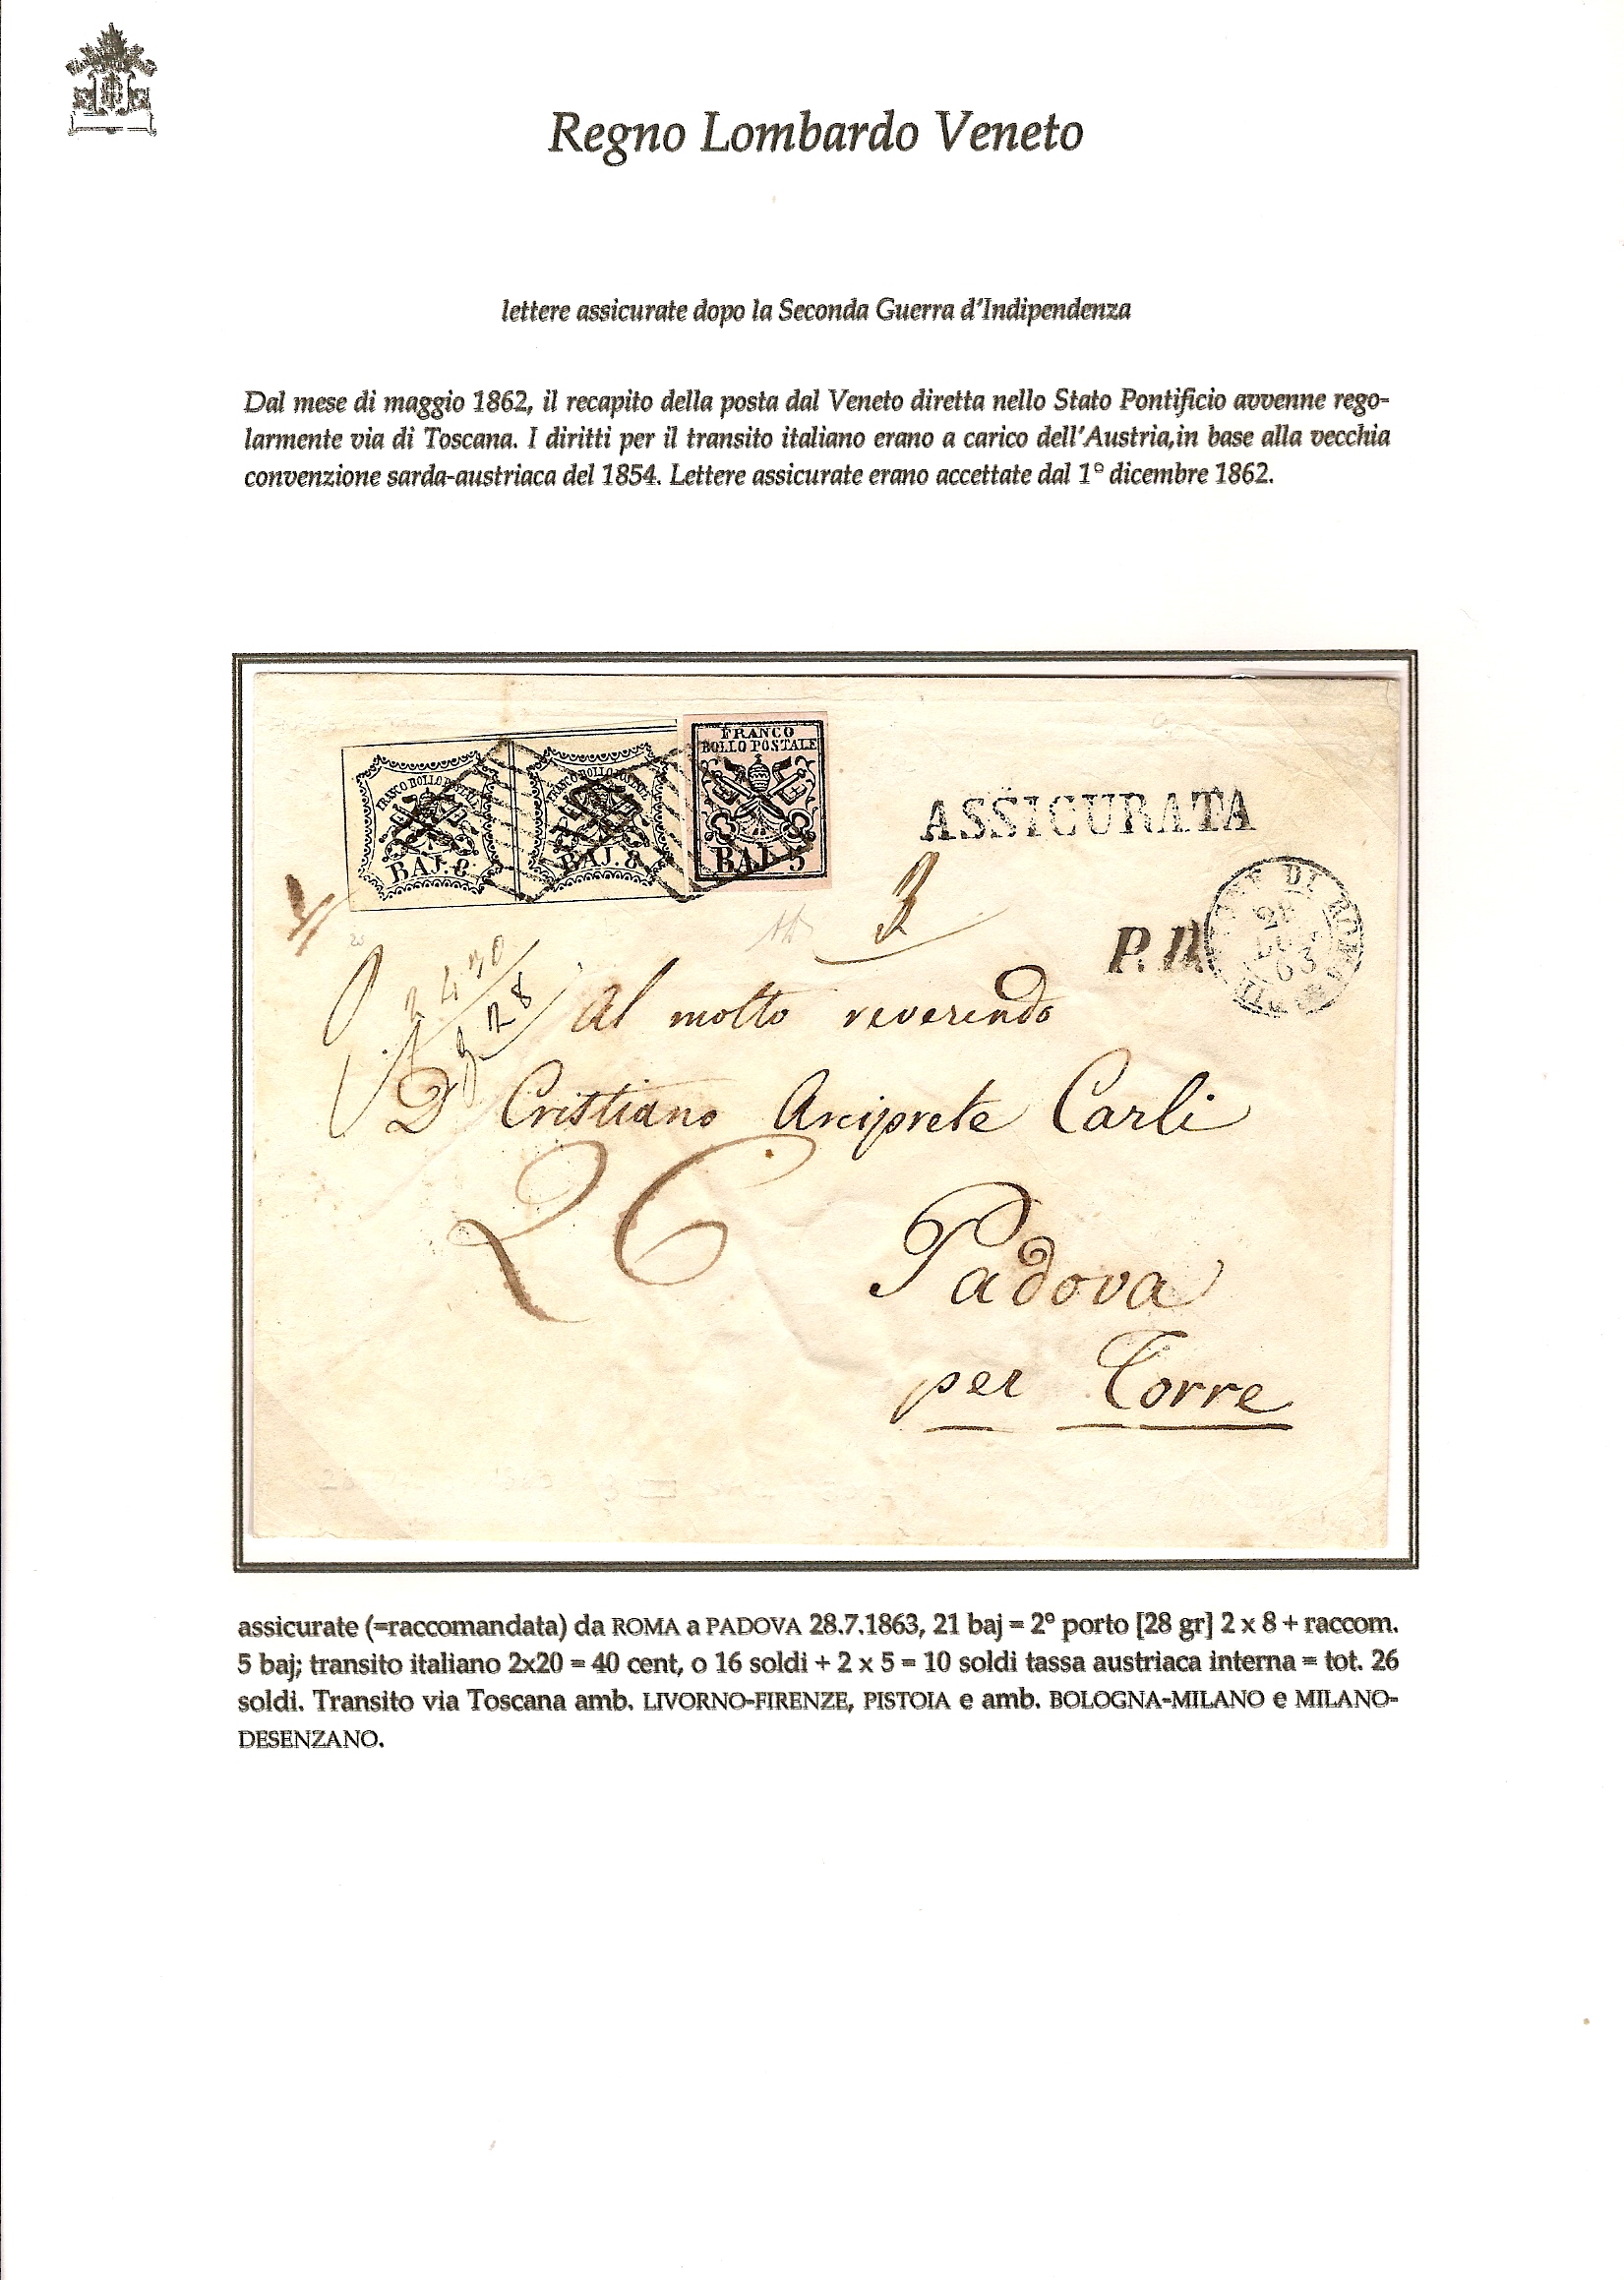 Regno Lombardo Veneto
lettere assicurate dopo la Seconda Guerra d'Indipendenza
Dal mese di maggio 1862, il recapito della posta dal Veneto diretta nello Stato Pontificio avvenne rego-
larmente via di Toscana. I diritti per il transito italiano erano a carico dell'Austria,in base alla vecchia
convenzione sarda-austriaca del 1854. Lettere assicurate erano accettate dal 1° dicembre 1862.
FRANCO BOLLO POSTALE
BAJ. 8
FRANCO BOLLO POSTALE
BAJ. 8
FRANCO
BOLLO POSTALE
BAJ. 5
ASSICURATA
P.D.
DI ROMA
28
63
28
Al molto reverendo
D Cristiano Arciprete Carli
26
Padova
per Torre
assicurate (=raccomandata) da ROMA a PADOVA 28.7.1863, 21 baj = 2° porto [28 gr] 2 x 8 + raccom.
5 baj; transito italiano 2x20 = 40 cent, o 16 soldi + 2 x 5 = 10 soldi tassa austriaca interna = tot. 26
soldi. Transito via Toscana amb. LIVORNO-FIRENZE, PISTOIA e amb. BOLOGNA-MILANO e MILANO-
DESENZANO.